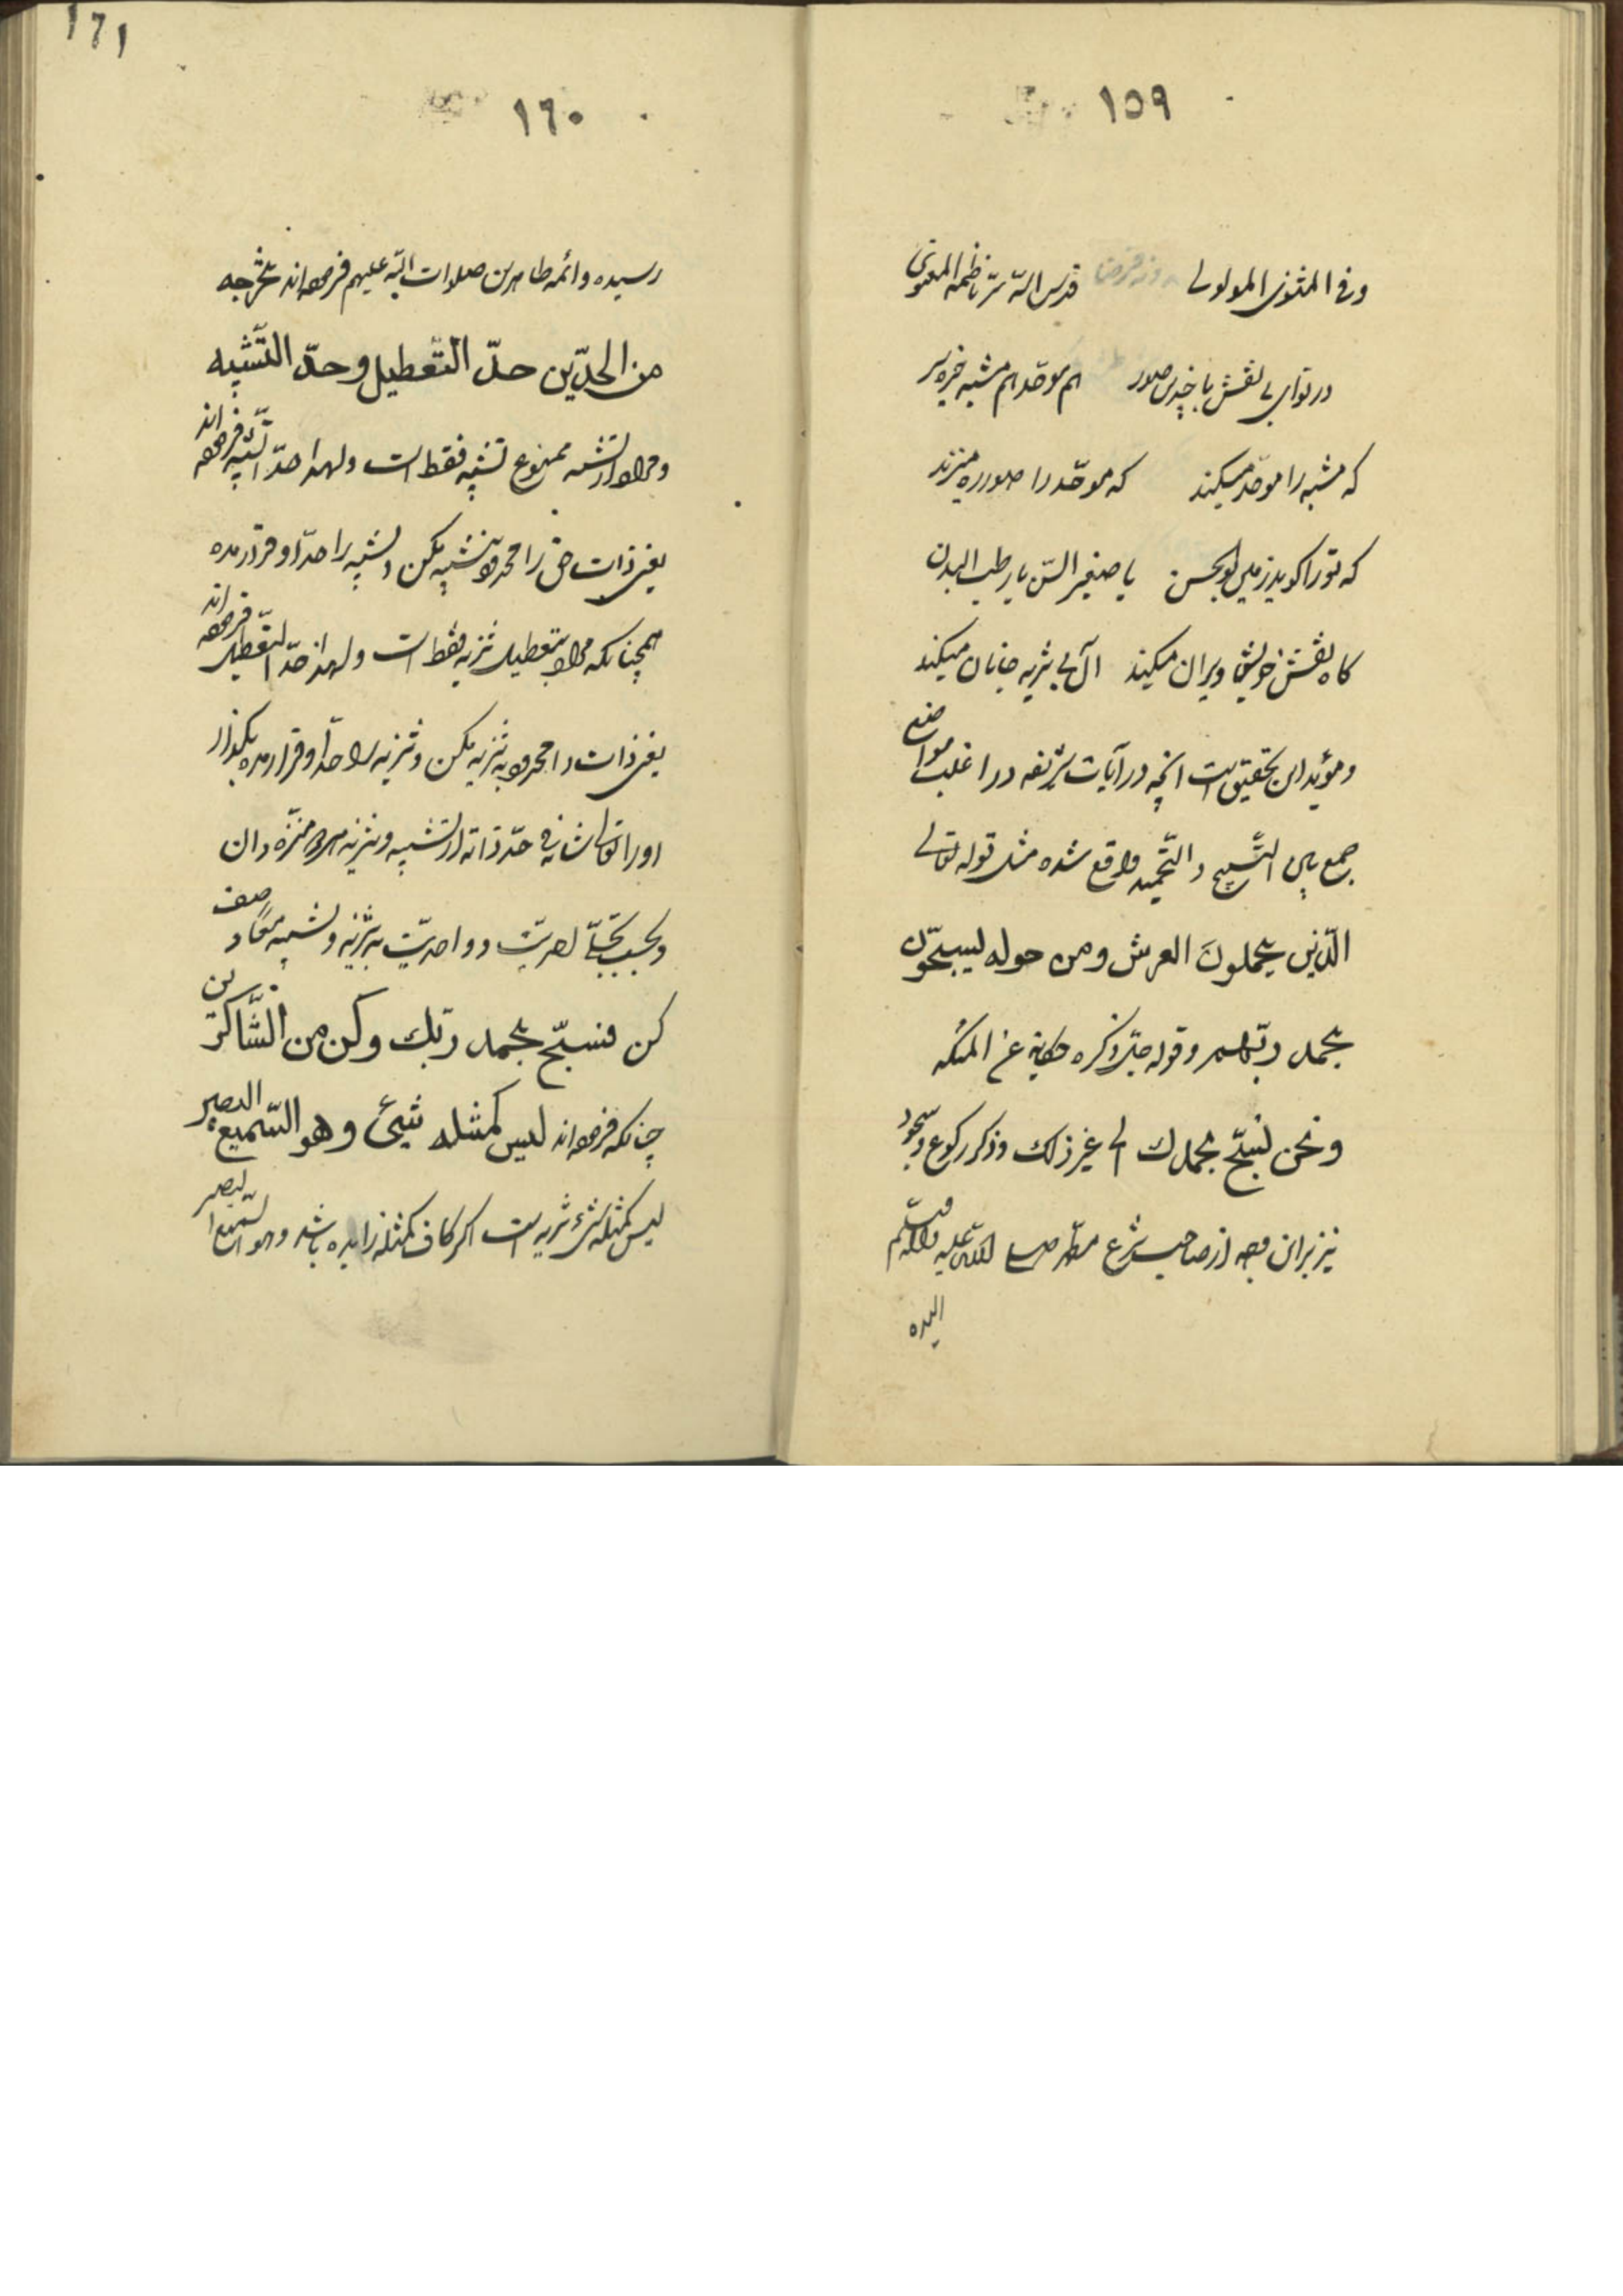 ١٥٩
وفی المثنوی المولوی قدس الله سر ناظمه المعنوی
در تو ای بی نقش با چندین صور هم موحد هم مشبه خیره سر
که مشبه را موحد میکند که موحد را صور ره میزند
که تو را کوید ز مستی بوالحسن یا صغیر السن یا رطب البدن
کاه نقش خویش ویران میکند از پی تنزیه جانان میکند
ومؤید این تحقیق است انچه در آیات شریفه در اغلب مواضع
جمع بین التسبیح والتحمید واقع شده مثل قوله تعالی
الّذین یحملون العرش ومن حوله یسبحّون
بحمد ربّهم وقوله جلّ ذکره حکایة عن الملئکه
ونحن نسبّح بحمدك الی غیر ذلك وذکر رکوع وسجود
نیز بر این وجه از صاحب شرع مطهر صلی الله علیه وآله وسلّم
١٦٠
١٦١
رسیده وائمه طاهرین صلوات الله علیهم فرموده‌اند بخرجه
من الحدّین حدّ التّعطیل وحدّ التّشبیه
ومراد از تشبیه ممنوع تشبیه فقط است ولهذا حدّ التّشبیه فرموده اند
یعنی ذات حق را محدود بتشبیه مکن وتشبیه را حدّ او قرار مده
همچنانکه مراد بتعطیل تنزیه فقط است ولهذا حدّ التّعطیل فرموده اند
یعنی ذات را محدود به تنزیه مکن وتنزیه را حدّ او قرار مده بلکه
او را تعالی شانه فی حدّ ذاته از تشبیه وتنزیه هر دو منزّه دان
وبحسب تجلّی احدیّت و واحدیّت به تنزیه وتشبیه معاً وصف
کن فسبّح بحمد ربّك وکن من الشّاکرین
چنانکه فرموده اند لیس کمثله شیئ وهو السّمیع البصیر
لیس کمثله شیء تنزیه است اکر کاف کمثله زایده باشد وهو السّمیع البصیر